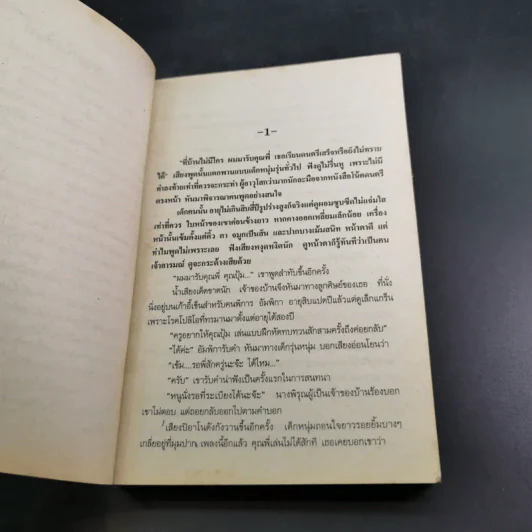 -1-
"ที่บ้านไม่มีใคร ผมมารับคุณพี่ เธอเรียนดนตรีเสร็จหรือยังไม่ทราบ
ได้" เสียงพูดนั้นแตกพานแบบเด็กหนุ่มรุ่นทั่วไป ฟังดูไม่รื่นหู เพราะไม่มี
คำลงท้ายเท่าที่ควรจะกระทำ ผู้อาวุโสกว่ามากนักละมือจากหนังสือโน้ตดนตรี
ตรงหน้า หันมาพิจารณาคนพูดอย่างสนใจ
เด็กคนนั้น อายุไม่เกินสิบสี่ปีรูปร่างสูงกิจริงแต่ดูผอมซูบซีดไม่แจ่มใส
เท่าที่ควร ใบหน้าของเขาค่อนข้างยาว หากคางออกเหลี่ยมเล็กน้อย เครื่อง
หน้านั้นเข้มตั้งแต่คิ้ว ตา จมูกเป็นสัน และปากบางเม้มสนิท หน้าตาดี แต่
ทำไมพูดไม่เพราะเลย ฟังเสียงหงุดหงิดนัก ดูหน้าตาก็รู้ทันทีว่าเป็นคน
เจ้าอารมณ์ ดูจะกระด้างเสียด้วย
"ผมมารับคุณพี่ คุณปุ้ม..." เขาพูดสำทับขึ้นอีกครั้ง
น้ำเสียงเด็ดขาดนัก เจ้าของบ้านจึงหันมาทางลูกศิษย์ของเธอ ที่นั่ง
นิ่งอยู่บนเก้าอี้เข็นสำหรับคนพิการ อัมพิกา อายุสิบแปดปีแล้วแต่ดูเล็กแกร็น
เพราะโรคโปลิโอที่ทรมานมาตั้งแต่อายุได้สองปี
"ครูอยากให้คุณปุ้ม เล่นแบบฝึกหัดทบทวนสักสามครั้งถึงค่อยกลับ"
"ได้ค่ะ" อัมพิการับคำ หันมาทางเด็กรุ่นหนุ่ม บอกเสียงอ่อนโยนว่า
"เข้ม....รอพี่สักครู่นะจ๊ะ ได้ไหม..."
"ครับ" เขารับคำน่าฟังเป็นครั้งแรกในการสนทนา
"หนูนั่งรอที่ระเบียงได้นะจ๊ะ" นางพิรุณผู้เป็นเจ้าของบ้านร้องบอก
เขาไม่ตอบ แต่ถอยกลับออกไปตามคำบอก
เสียงเปียโนดังกังวานขึ้นอีกครั้ง เด็กหนุ่มถอนใจยาวรอยยิ้มบางๆ
เกลื่อยู่ที่มุมปาก เพลงนี้อีกแล้ว คุณพี่เล่นไม่ได้สักที เธอเคยบอกเขาว่า